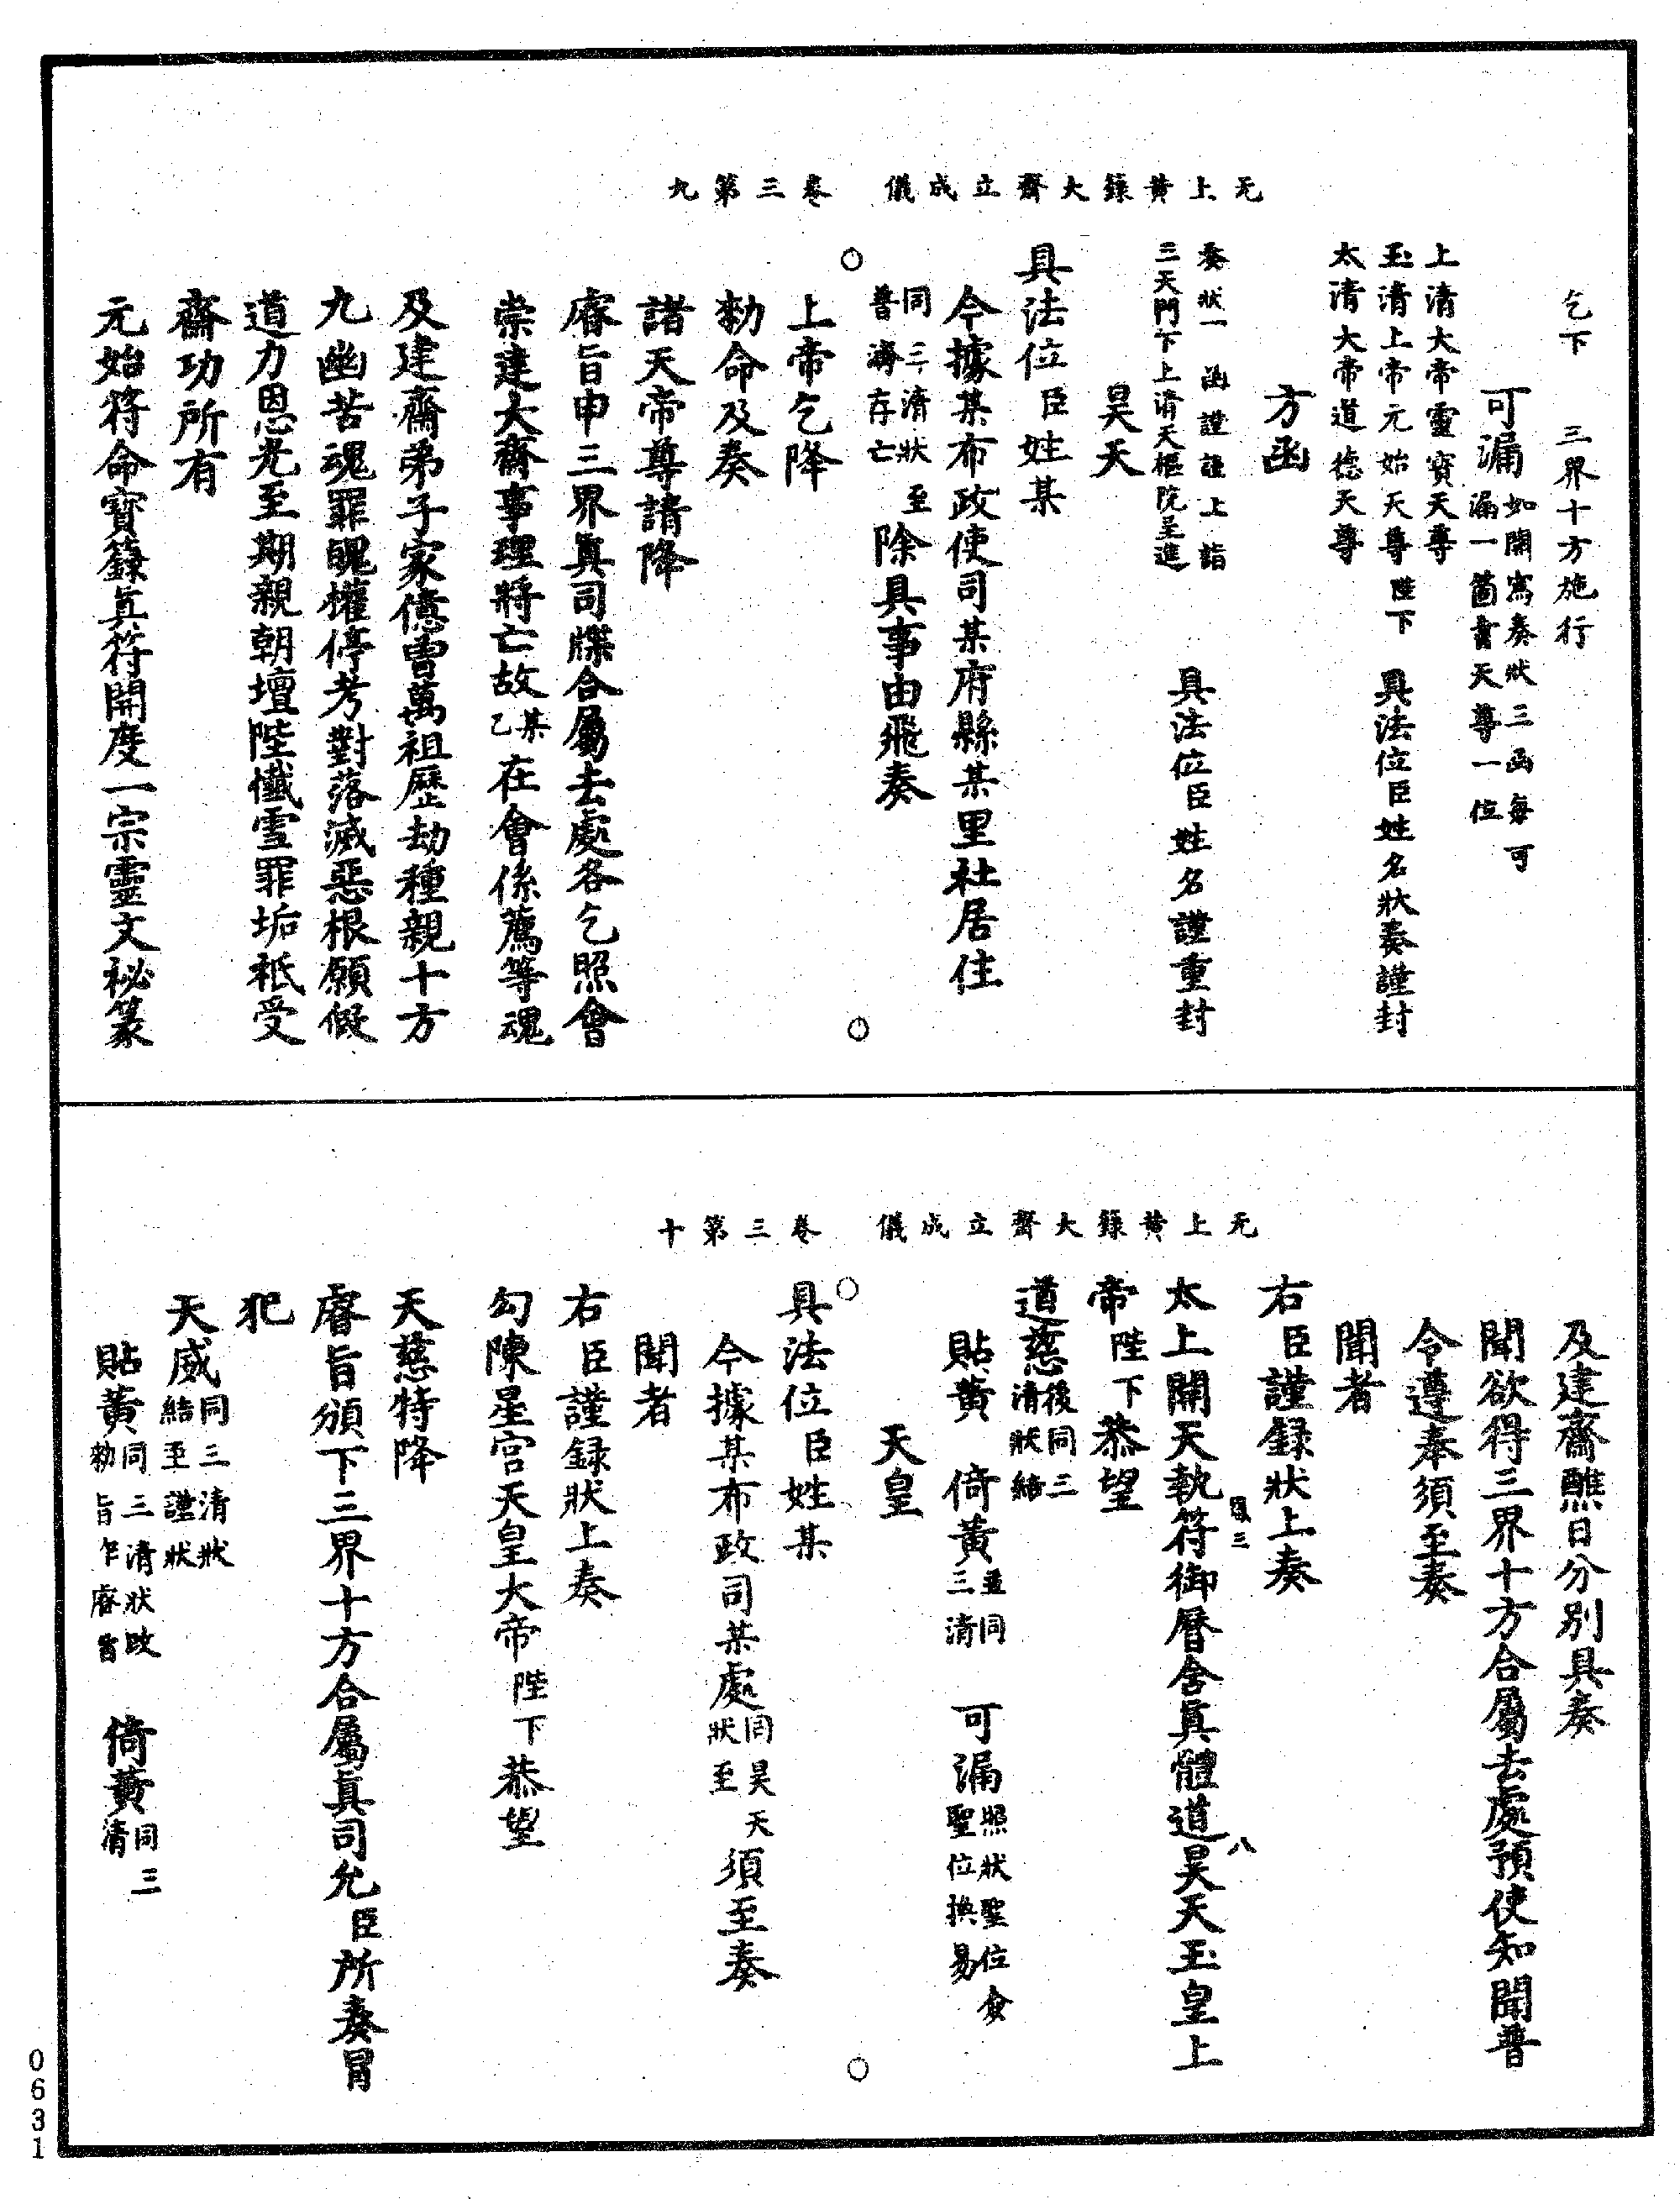 无上黃籙大齋立成儀　卷三第九
乞下　三界十方施行
可漏如開寫奏狀三函每可漏一箇書天尊一位
上清大帝靈寶天尊
玉清上帝元始天尊陛下　具法位臣姓名狀奏謹封
太清大帝道德天尊
方函
奏狀一函謹謹上詣
三天門下上清天樞院呈進　具法位臣姓名謹重封
昊天
具法位臣姓某
今據某布政使司某府縣某里社居住
同三清狀至普濟存亡除具事由飛奏
上帝乞降
勑命及奏
諸天帝尊請降
睿旨申三界眞司牒合屬去處各乞照會
崇建大齋事理將亡故某乙在會係薦等魂
及建齋弟子家億曾萬祖歷劫種親十方
九幽苦魂罪魄權停考對落滅惡根願假
道力恩光至期親朝壇陛懺雪罪垢祇受
齋功所有
元始符命寶籙眞符開度一宗靈文祕篆
无上黃籙大齋立成儀　卷三第十
及建齋醮日分別具奏
聞欲得三界十方合屬去處預使知聞普
令遵奉須至奏
聞者
右臣謹録狀上奏
太上開天執符御曆含眞體道昊天玉皇上
帝陛下恭望
道慈後同三清狀結
貼黃　倚黃並同三清　可漏照狀聖位僉聖位換易
天皇
具法位臣姓某
今據某布政司某處同昊天狀至須至奏
聞者
右臣謹録狀上奏
勾陳星宮天皇大帝陛下恭望
天慈特降
睿旨頒下三界十方合屬眞司允臣所奏冒
犯
天威同三清狀結至謹狀
貼黃同三清狀改勑旨乍睿旨　倚黃同三清
0631